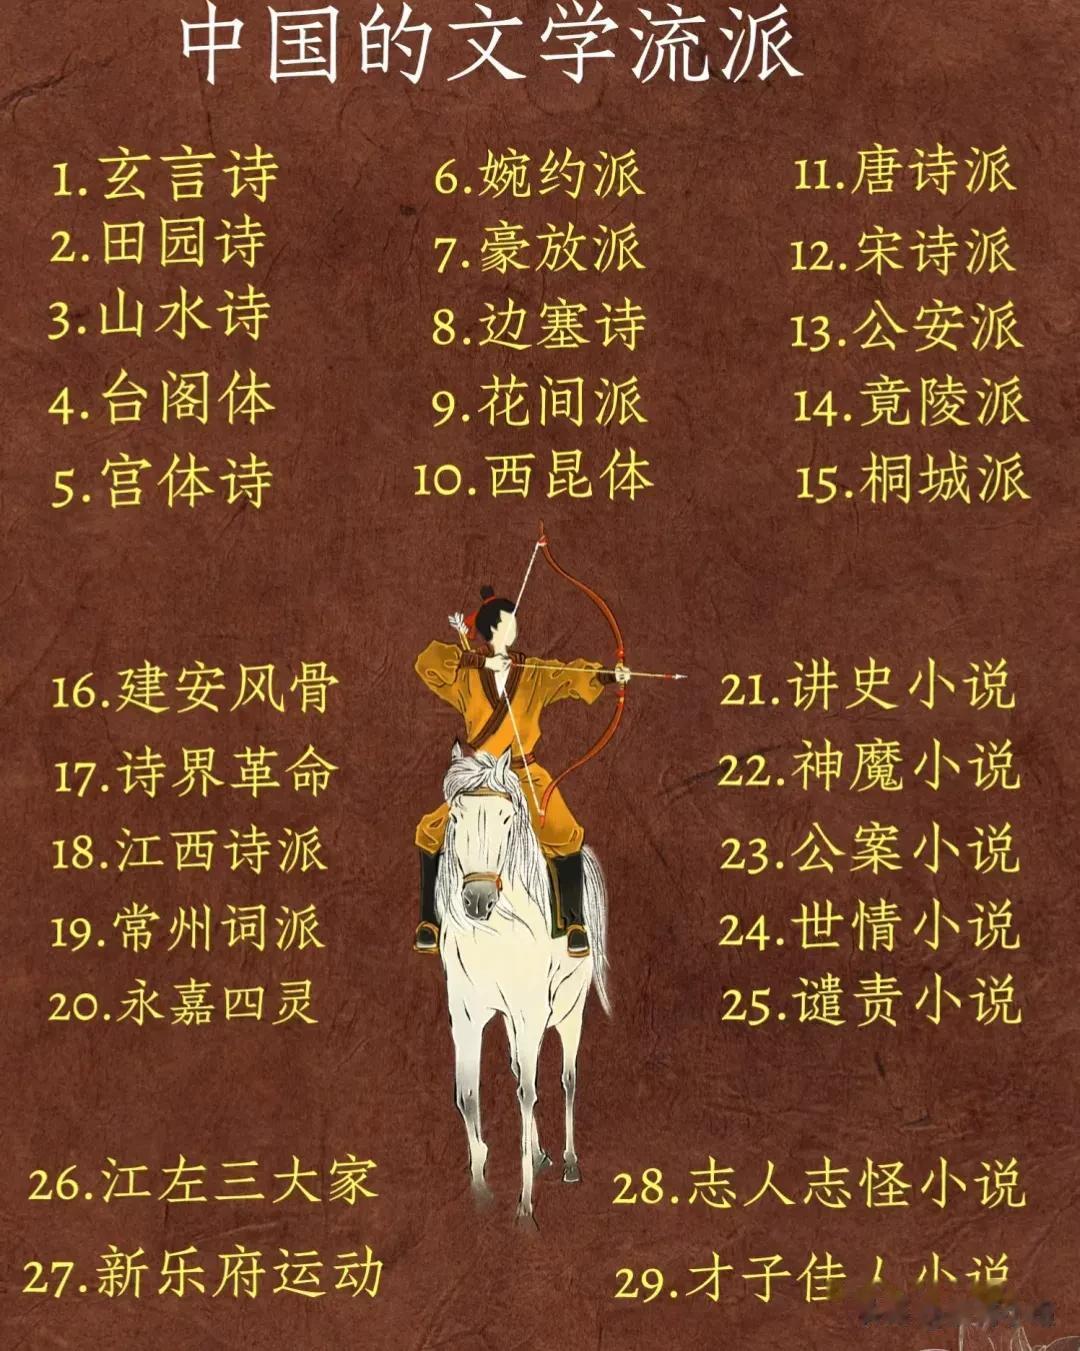 中国的文学流派
1.玄言诗
2.田园诗
3.山水诗
4.台阁体
5.宫体诗
6.婉约派
7.豪放派
8.边塞诗
9.花间派
10.西昆体
11.唐诗派
12.宋诗派
13.公安派
14.竟陵派
15.桐城派
16.建安风骨
17.诗界革命
18.江西诗派
19.常州词派
20.永嘉四灵
21.讲史小说
22.神魔小说
23.公案小说
24.世情小说
25.谴责小说
26.江左三大家
27.新乐府运动
28.志人志怪小说
29.才子佳人小说